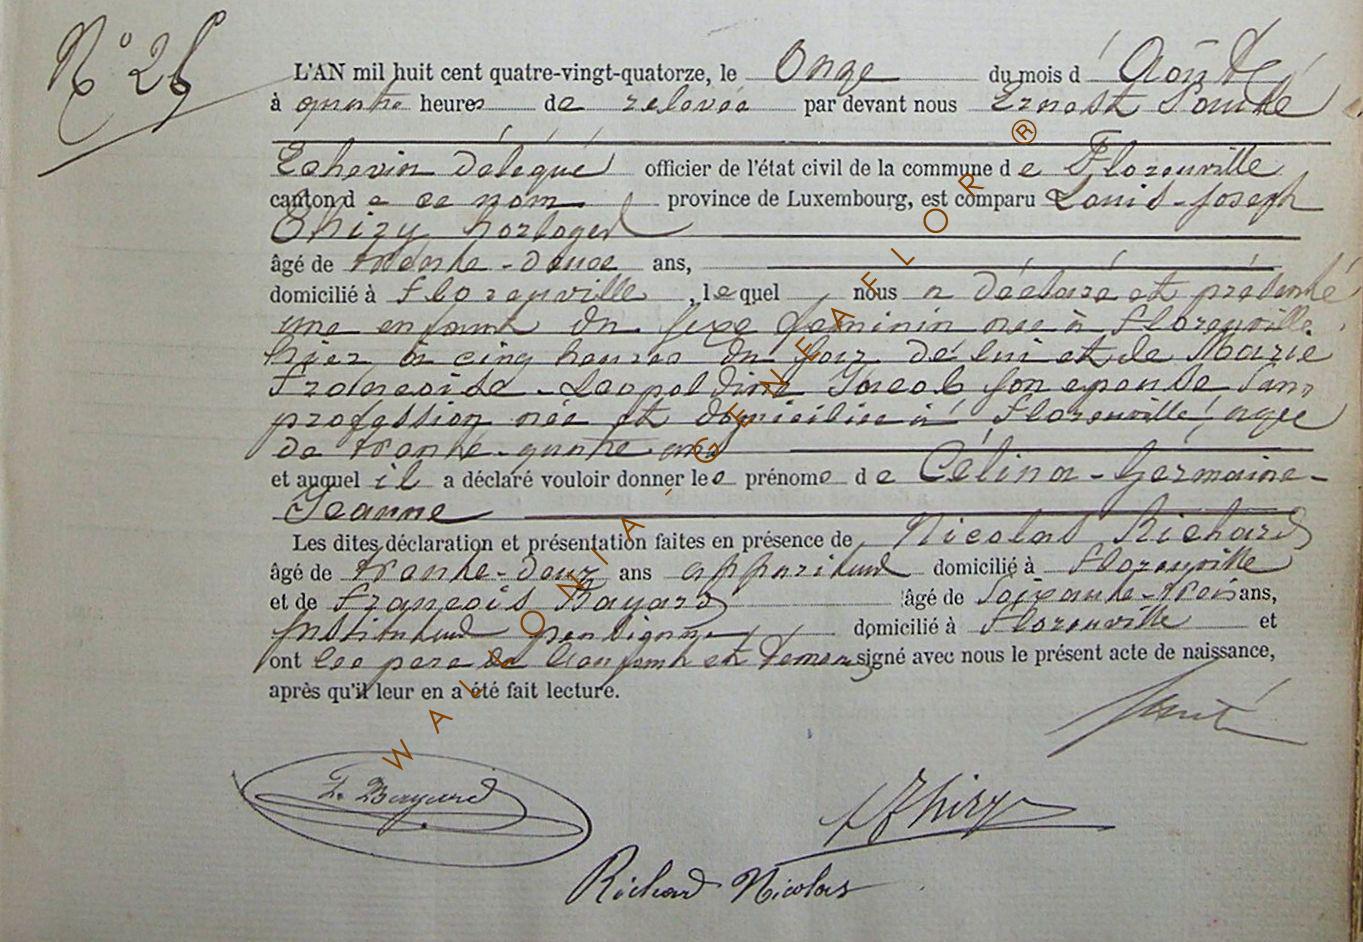 N° 26
L'AN mil huit cent quatre-vingt-quatorze, le Onze du mois d' Août
à quatre heures de relevée par devant nous Ernest
Echevin délégué officier de l'état civil de la commune de Florenville
canton de ce nom province de Luxembourg, est comparu Louis-Joseph
Thiry horloger
âgé de trente-douze ans,
domicilié à Florenville, lequel nous a déclaré et présenté
une enfant du sexe féminin née à Florenville
hier à cinq heures du soir de lui et de Marie
Françoise-Leopoldine Jacob son epouse sans
profession née et domiciliée à Florenville, agée
de trente-quatre ans
et auquel il a déclaré vouloir donner les prénoms de Célina-Germaine-
Jeanne
Les dites déclaration et présentation faites en présence de Nicolas Richard
âgé de trente-deux ans appariteur domicilié à Florenville
et de François Bayard âgé de Soixante-trois ans,
Instituteur pensionné domicilié à Florenville et
ont les père de l'enfant et témoins signé avec nous le présent acte de naissance,
après qu'il leur en a été fait lecture.
F. Bayard
Thiry
Richard Nicolas
WALLONIA - GENEAFLOR ®